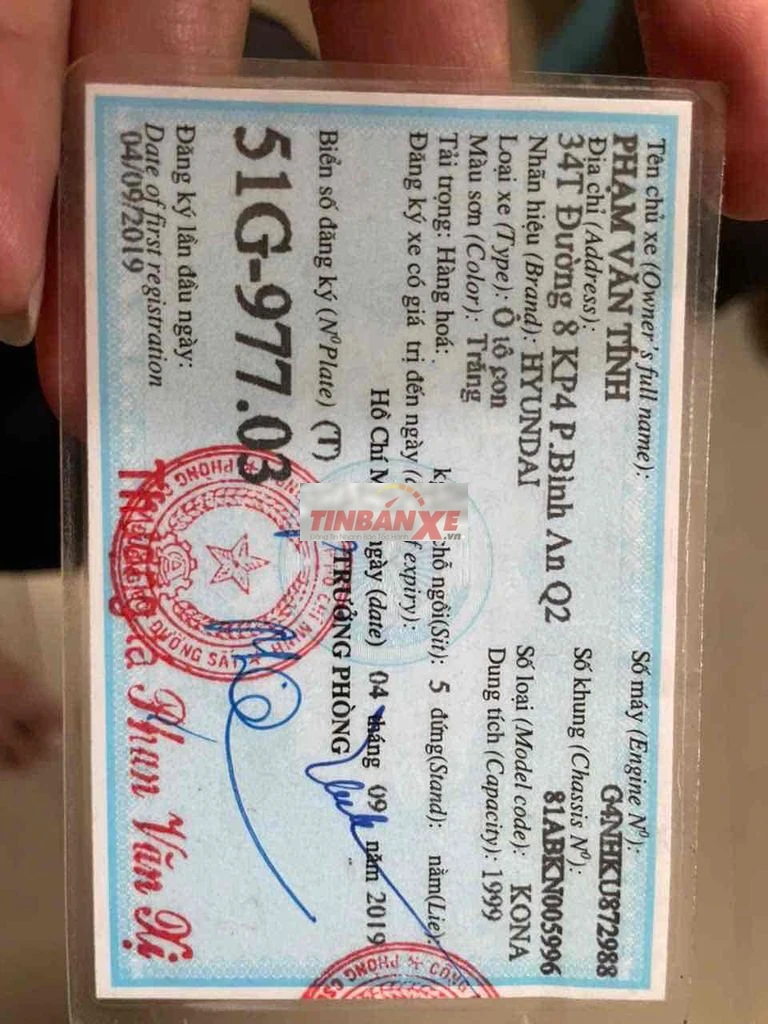 Tên chủ xe (Owner's full name):
PHẠM VĂN TÍNH
Địa chỉ (Address):
34T Đường 8 KP4 P.Bình An Q2
Nhãn hiệu (Brand): HYUNDAI
Loại xe (Type): Ô tô con
Màu sơn (Color): Trắng
Tải trọng: Hàng hoá:
Số máy (Engine Nº):
G4NHKU872988
Số khung (Chassis Nº):
81ABKN005996
Số loại (Model code): KONA
Dung tích (Capacity): 1999
chỗ ngồi(Sit): 5 đứng(Stand): nằm(Lie):
Đăng ký xe có giá trị đến ngày expiry):
Hồ Chí ngày (date) 04 tháng 09 năm 2019
Biển số đăng ký (NºPlate) (T)
TRƯỞNG PHÒNG
51G-977.03
Đăng ký lần đầu ngày:
Date of first registration
04/09/2019
Phan Văn Xị
TINBANXE.vn
ĐƯỜNG SẮT